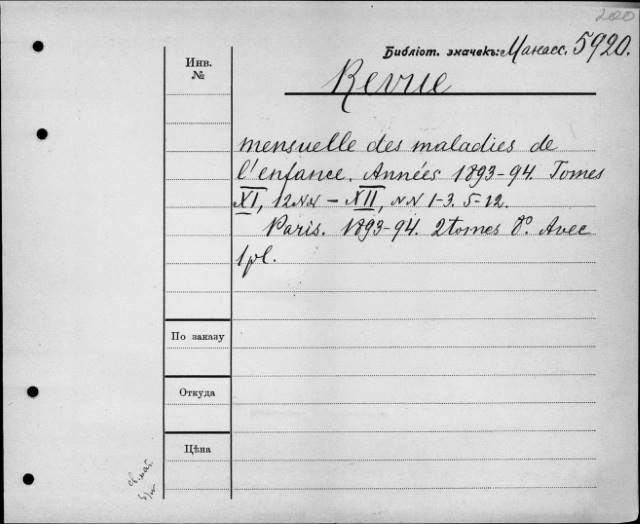 200
Библіот. значекъ: Манасс. 5920.
Инв. №
Revue
mensuelle des maladies de
l'enfance. Années 1893-94. Tomes
XI, 12NN – XII, NN 1-3. 5-12.
Paris. 1893-94. 2 tomes 8º. Avec
1 pl.
По заказу
Откуда
Цѣна